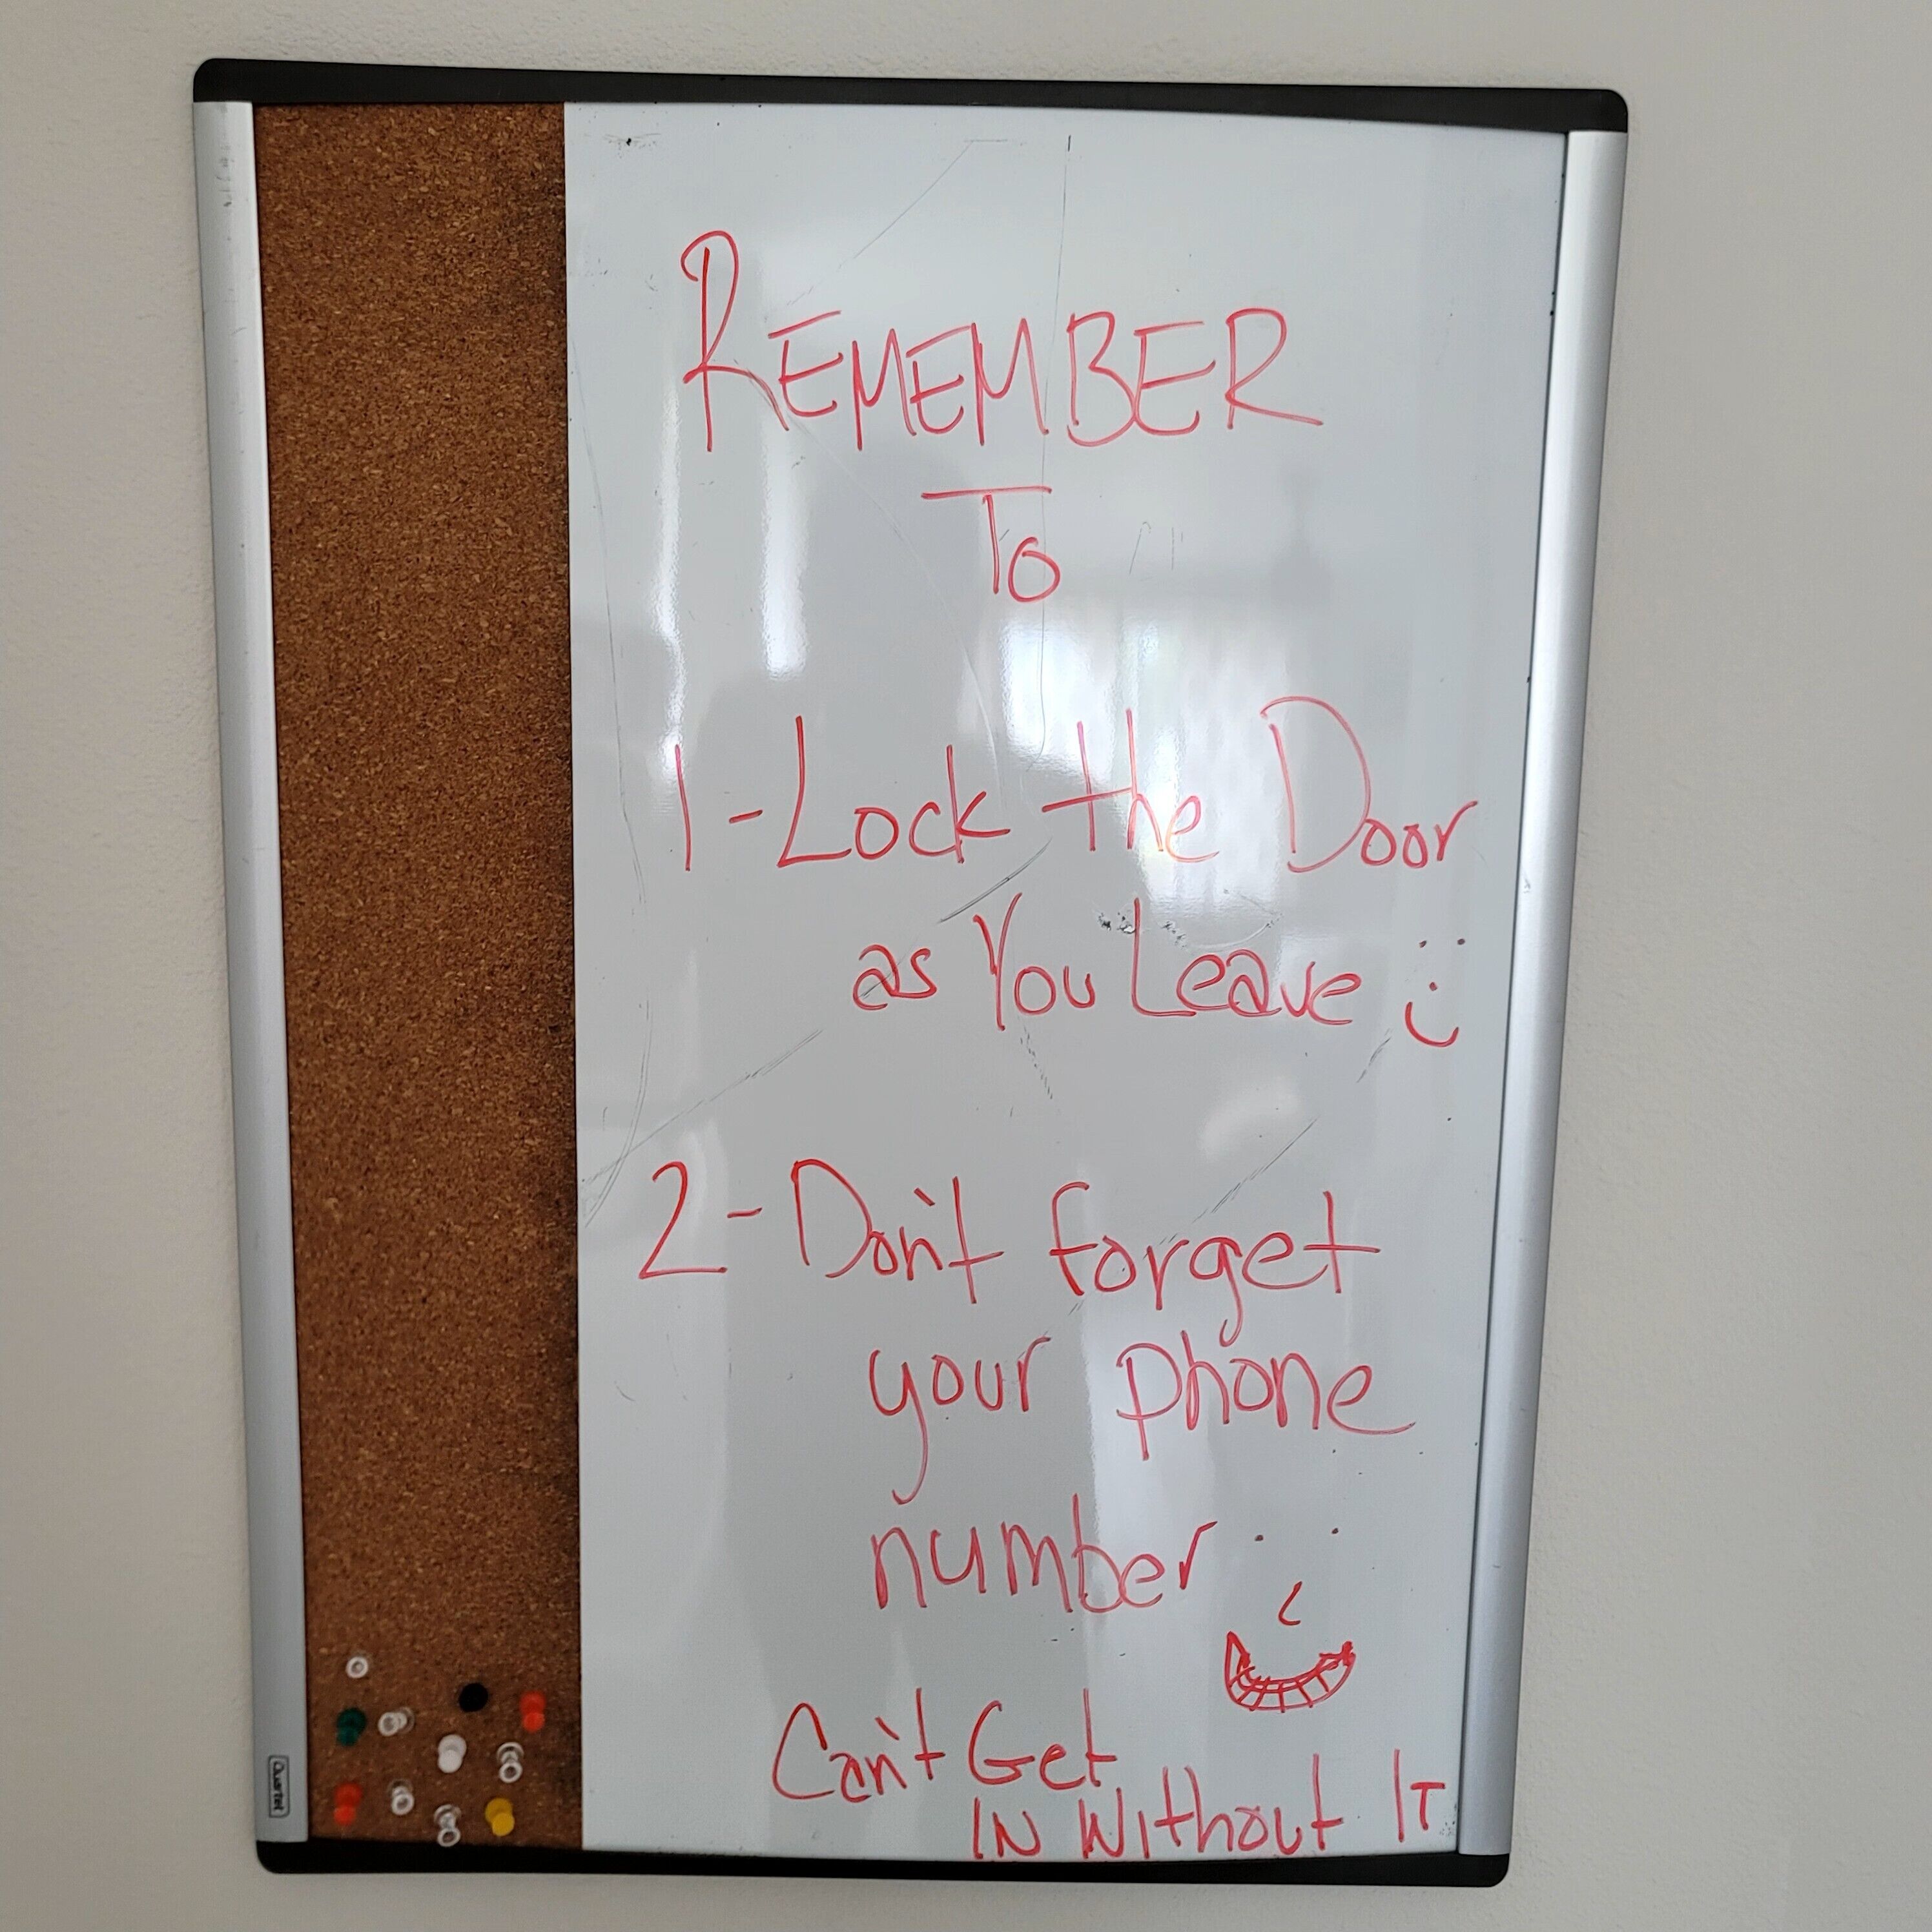 REMEMBER
To
1-Lock the Door
as You Leave
2-Don't forget
your phone
number
Can't Get
IN Without IT
Quartet